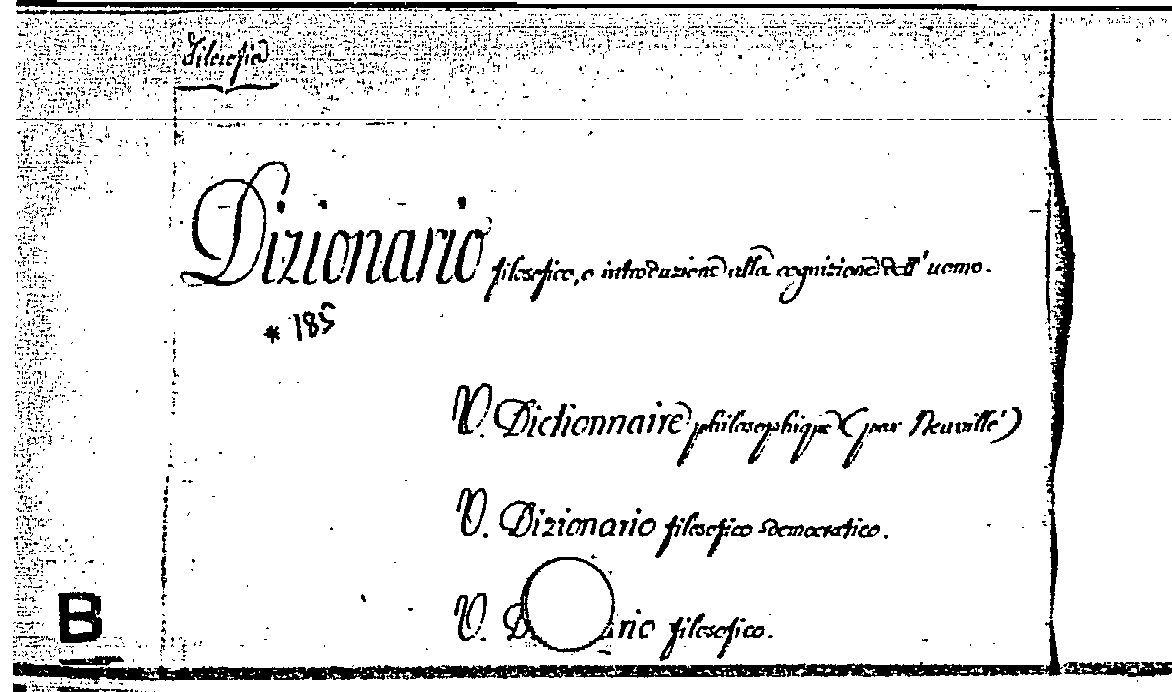 Filosofia
Dizionario filosofico, o introduzione alla cognizione dell'uomo.
* 185
V. Dictionnaire philosophique (par Neuvillé)
V. Dizionario filosofico democratico.
V. D ario filosofico.
B